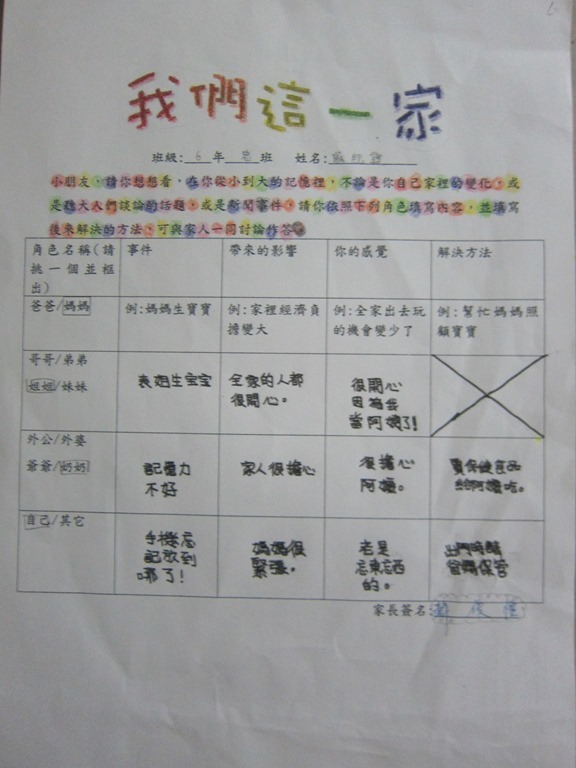 我們這一家
班級:6年忠班 姓名:
小朋友,請你想想看,在你從小到大的記憶裡,不論是你自己家裡的變化,或
是聽大人們談論的話題,或是新聞事件,請你依照下列角色填寫內容,並填寫
後來解決的方法,可與家人一同討論作答。
角色名稱(請
挑一個並框
出)
事件
帶來的影響
你的感覺
解決方法
爸爸/媽媽
例:媽媽生寶寶
例:家裡經濟負
擔變大
例:全家出去玩
的機會變少了
例:幫忙媽媽照
顧寶寶
哥哥/弟弟
姐姐/妹妹
表姐生宝宝
全家的人都
很開心。
很開心
因為我
當阿姨了!
外公/外婆
爺爺/奶奶
記憶力
不好
家人很擔心
很擔心
阿嬤。
買保健食品
給阿嬤吃。
自己/其它
手機忘
記放到
哪了!
媽媽很
緊張。
老是
忘東忘西
的。
出門時請
保管
家長簽名: